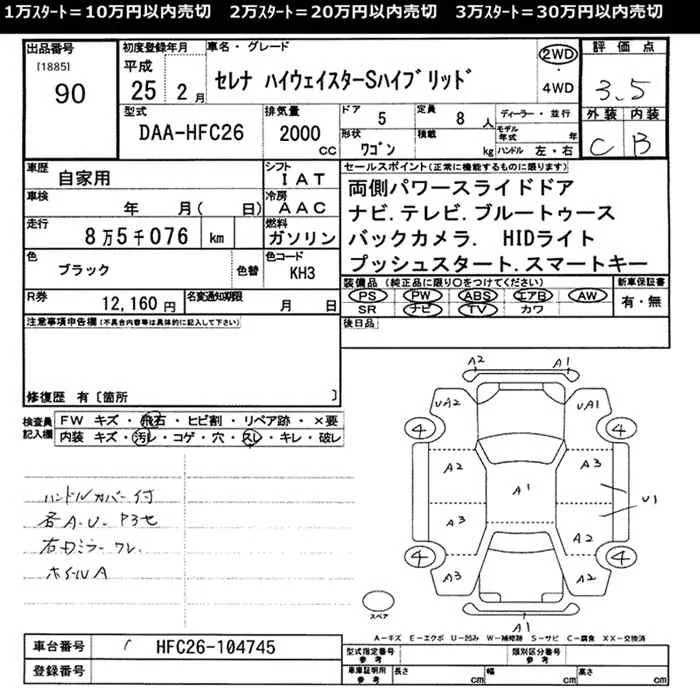 1万スタート＝10万円以内売切　2万スタート＝20万円以内売切　3万スタート＝30万円以内売切
出品番号
[1885]
90
初度登録年月
平成
25 2月
車名・グレード
セレナ ハイウェイスターSハイブリッド
2WD
・
4WD
評価点
3.5
外装 内装
C B
型式
DAA-HFC26
排気量
2000
CC
ドア
5
定員
8人
形状
ワゴン
積載
kg
ディーラー・並行
モデル年式 年
ハンドル 左・右
車歴
自家用
シフト
IAT
車検
年 月( 日)
冷房
AAC
走行
8万5千076 km
燃料
ガソリン
色
ブラック
色替
色コード
KH3
R券
12,160円
名変通知期限
月 日
セールスポイント(正常に機能するものに限ります)
両側パワースライドドア
ナビ.テレビ.ブルートゥース
バックカメラ. HIDライト
プッシュスタート.スマートキー
装備品 (純正品に限り○をつけてください)
PS PW ABS エアB AW
SR ナビ TV カワ
新車保証書
有・無
後日品
注意事項申告欄(不具合内容等は具体的に記入して下さい)
修復歴 有〔箇所 〕
検査員
記入欄
FW キズ・飛石・ヒビ割・リペア跡・×要
内装 キズ・汚レ・コゲ・穴・スレ・キレ・破レ
ハンドルカバー付
各A-U-
右ドミラーワレ
ホイルA
A2 A1
UA2 UA1
4 4
A2 A3
A1
U1
A3 A2
4 4
A3 A2
A1
スペア
A－キズ E－エクボ U－凹み W－補修跡 S－サビ C－腐食 XX－交換済
車台番号
HFC26-104745
登録番号
型式指定番号
参考
類別区分番号
参考
車庫証明用
参考
長さ cm
幅 cm
高さ cm